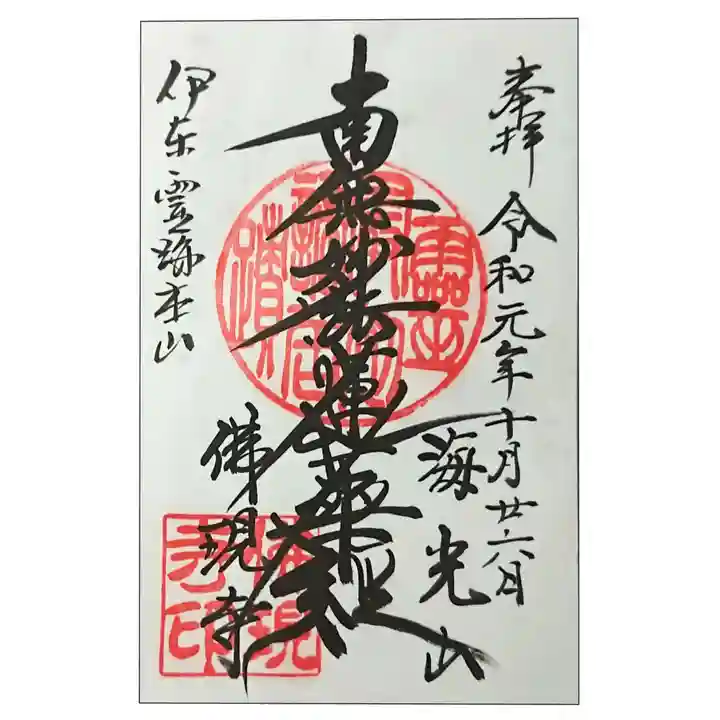 奉拝 令和元年十月廿六日
海光山
南無妙法蓮華経
佛現寺
伊東霊跡本山